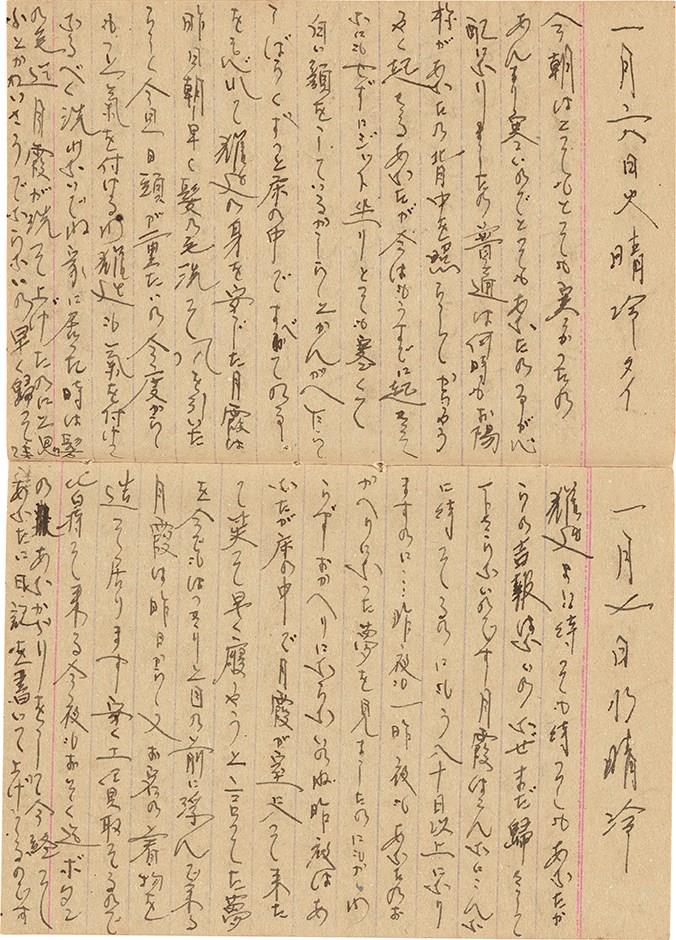 一月六日火晴冷タイ
今朝はとてもとても寒かつたの
あんまり寒いのでとてもあなたの事が心
配になりましたの 普通は何時もお陽
様があなたの背中を照らしてからやう
やく起きるあなたが今はもうすでに起きて
なにもせずにジット坐りとても寒くて
白い顔をしているかしらとかんがへていて
しばらくずつと床の中で
の身を案じた月霞は
昨日朝早く髮の毛洗そて を引いた
らしく今日一日頭が重たいの 今度から
もつと氣を付けるの も氣を付けて
なるべく洗わないでね 家に居つた時は髮
の毛迄月霞が洗そて上げたのにと思
ふとかわいさうでならないの早く歸つて来て
一月七日水晴冷
待つても待つてもあなたか
らの吉報はないの なぜまだ歸して
下さらないのです月霞はこんなにこんな
に待つてるのにもう八十日以上になり
ますのに…昨夜も一昨夜もあなたのお
かへりになつた夢を見ましたのにもかゝわ
らずおかへりにならないのね昨夜はあ
なたが床の中で月霞が室に入つて来た
て笑つて早く寢やうと言つてた夢
を今でもはつきりと目の前に浮んで来る
月霞は昨日から又お客の着物を
造つて居ります 安く 買取つてるので
持つて来る今夜もおそく迄ボタン
のあなかがりをして今終つて
あなたに日記を書いて上げてるのです